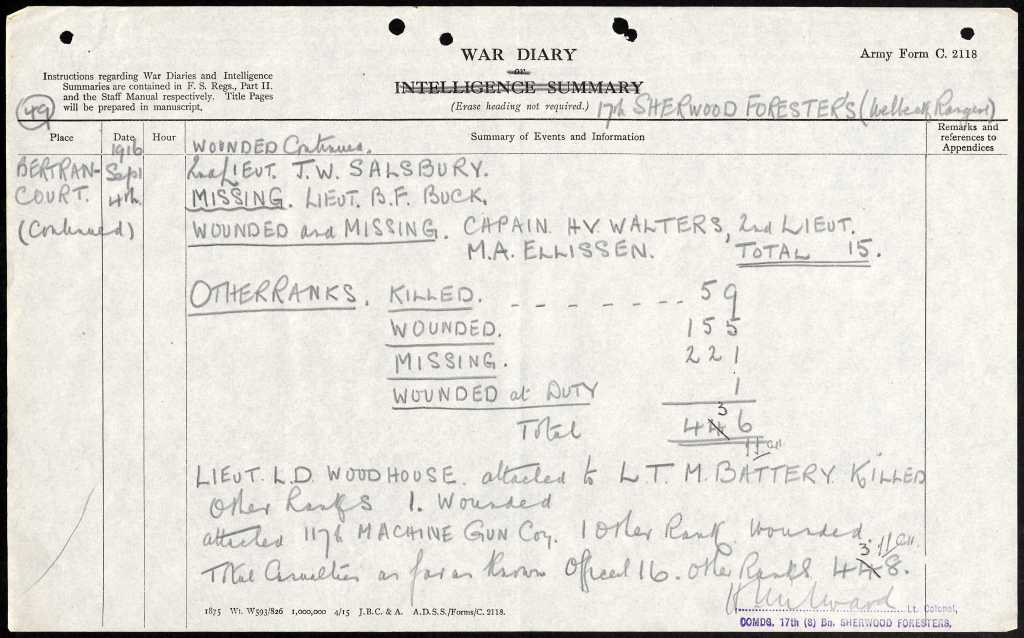 WAR DIARY
or
INTELLIGENCE SUMMARY
(Erase heading not required.)
Army Form C. 2118
Instructions regarding War Diaries and Intelligence
Summaries are contained in F. S. Regs., Part II.
and the Staff Manual respectively. Title Pages
will be prepared in manuscript.
49
17th SHERWOOD FORESTER'S (Welbeck Rangers)
Place Date Hour Summary of Events and Information Remarks and references to Appendices
1916 WOUNDED Continued.
BERTRAN- Sept 2nd LIEUT. J.W. SALSBURY.
COURT. 4th. MISSING. LIEUT. B.F. BUCK.
(Continued) WOUNDED and MISSING. CAPAIN H.V. WALTERS, 2nd LIEUT.
M.A. ELLISSEN. TOTAL 15.
OTHER RANKS. KILLED. - - - - - - - 59
WOUNDED. 155
MISSING. 221
WOUNDED at DUTY 1
3
Total 446
LIEUT. L.D. WOODHOUSE. attached to L.T.M. BATTERY. KILLED
Other Ranks 1. Wounded
attached 117th MACHINE GUN Coy. 1 Other Rank Wounded.
3
Total Casualties as far as known Officers 16. Other Ranks 448.
1875 Wt. W593/826 1,000,000 4/15 J.B.C. & A. A.D.S.S./Forms/C. 2118.
Lt. Colonel,
COMDG. 17th (S) Bn. SHERWOOD FORESTERS.